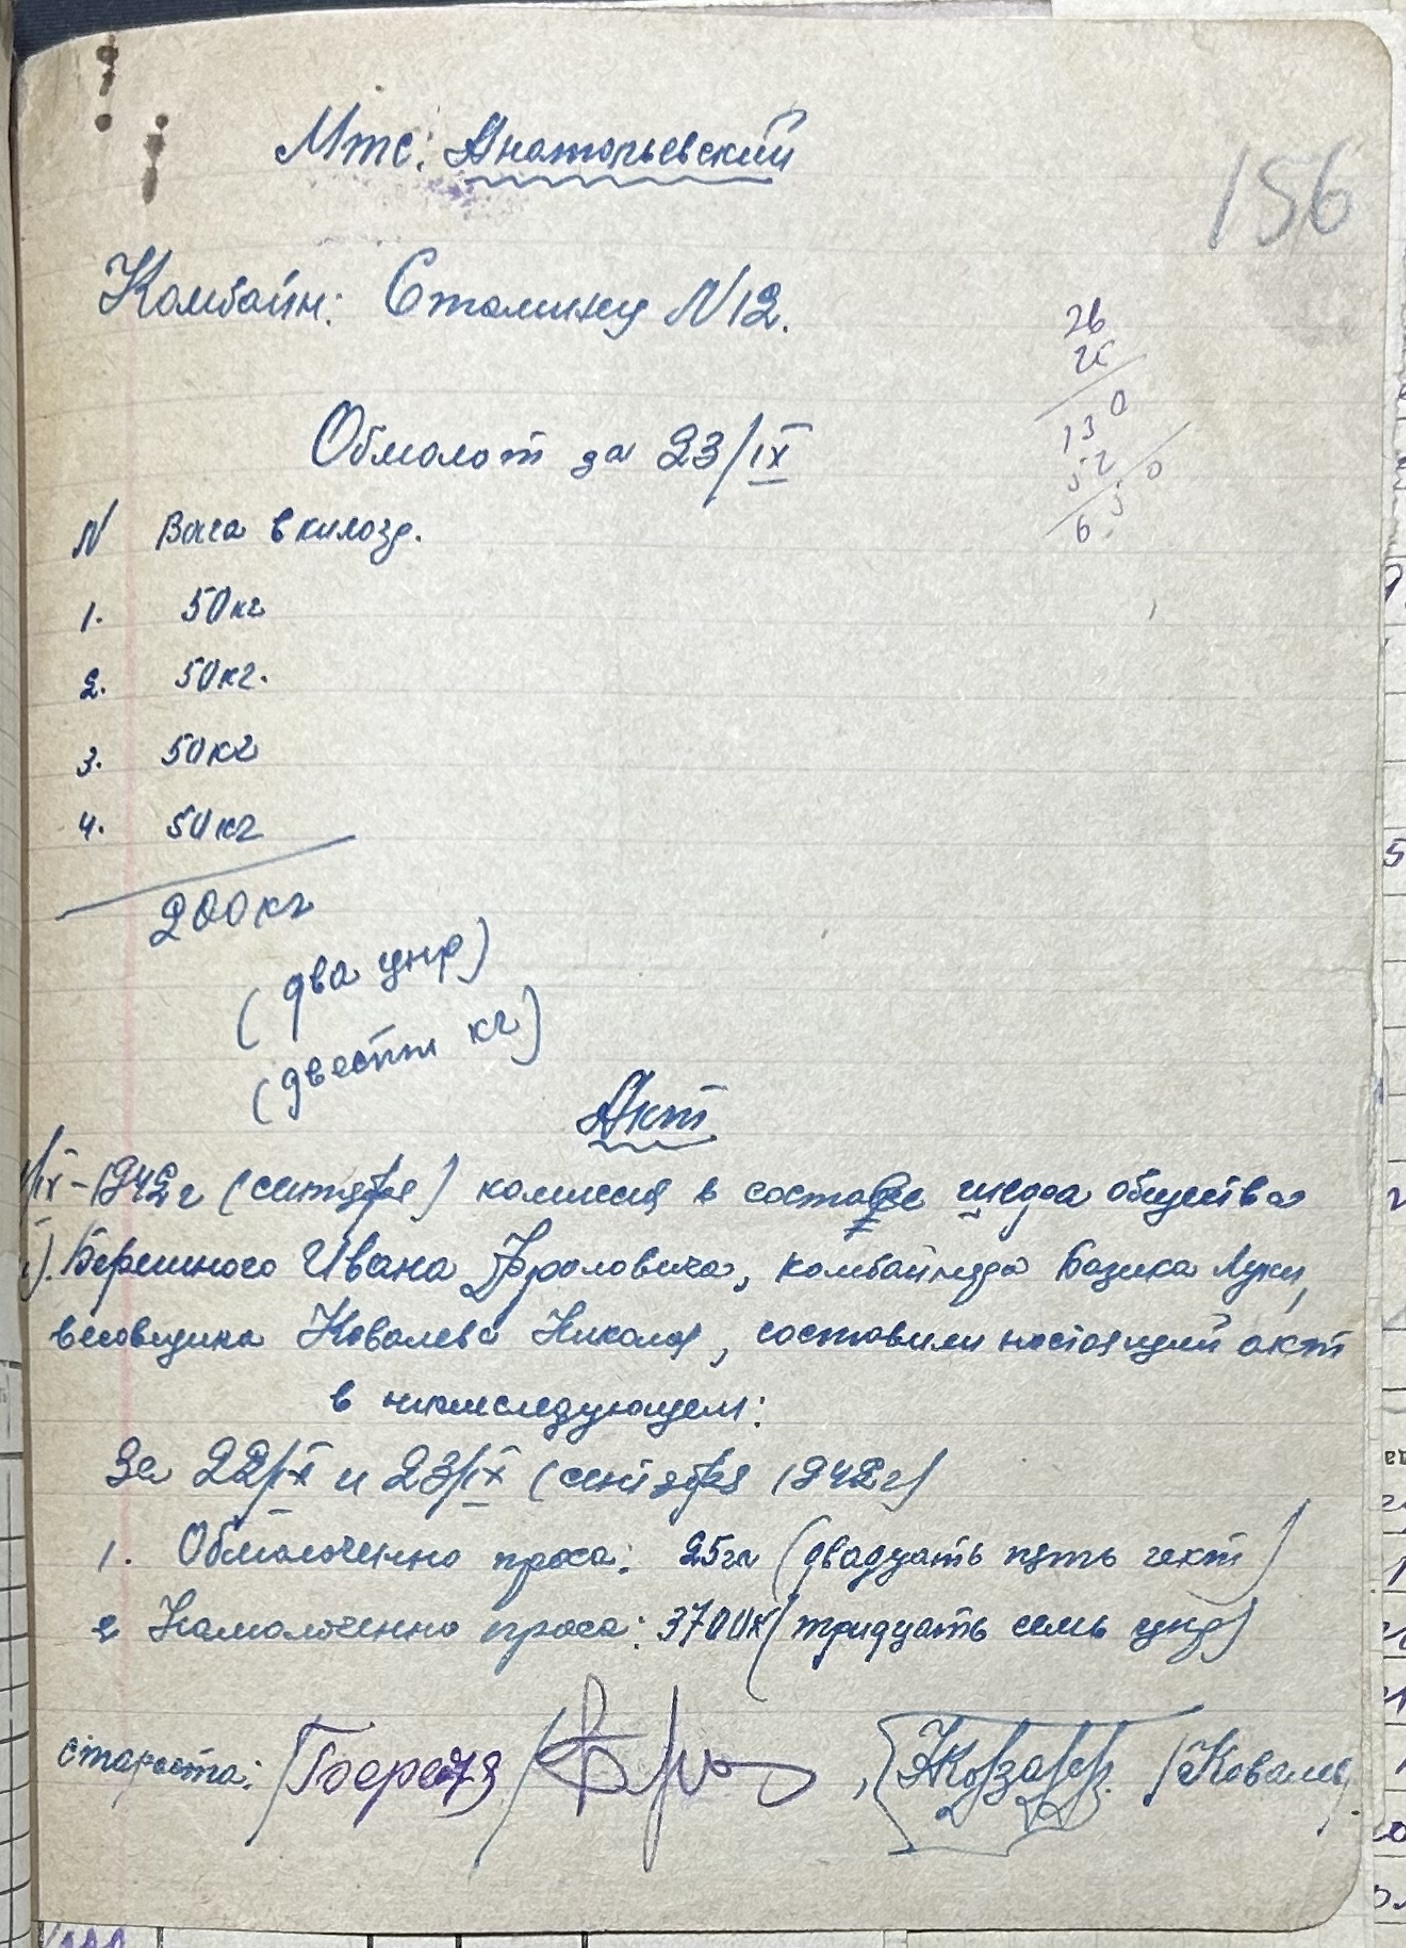 156
Мтс: Анатольевский
Комбайн: Сталинец N12.
26
25
130
52
650
Обмолот за 23/IX
N Вага в килогр.
1. 50кг
2. 50кг.
3. 50кг
4. 50кг
200кг
(два цнр)
(двести кг)
Акт
/IX-1942г (сентября) комиссия в составе общества
Ивана Фроловича, комбайнера Базика Луки,
весовщика Ковалева Николая, составили настоящий акт
в нижеследующем:
За 22/IX и 23/IX (сентября 1942г)
1. Обмолоченно проса: 25га (двадцать пять гект)
2 Намолоченно проса: 3700к (тридцать семь цнр)
староста: /Ковалев